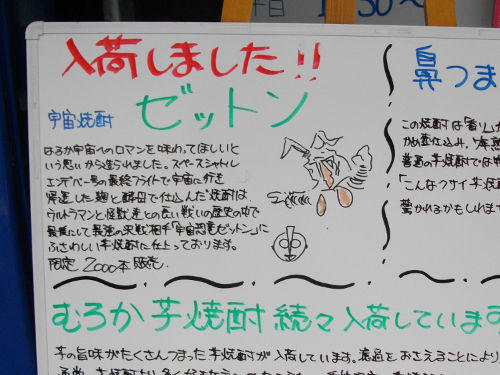 日 1:30〜
入荷しました!!
宇宙焼酎
ゼットン
はるか宇宙へのロマンを味わってほしいと
いう思いから造られました。スペースシャトル
エンデバー号の最終フライトで宇宙に行き
帰還した麹と酵母で仕込んだ焼酎は、
ウルトラマンと怪獣達との長い戦いの歴史の中で
最高にして最強の決戦相手「宇宙恐竜ゼットン」に
ふさわしい芋焼酎に仕上っております。
限定 2000本販売。
鼻つま
この焼酎は「香り
かめ壺仕込み、
普通の芋焼酎では
「こんなクサイ芋焼
驚かれるかもしれま
むろか芋焼酎続々入荷しています
芋の旨味がたくさんつまった芋焼酎が入荷しています。濾過をおさえることにより